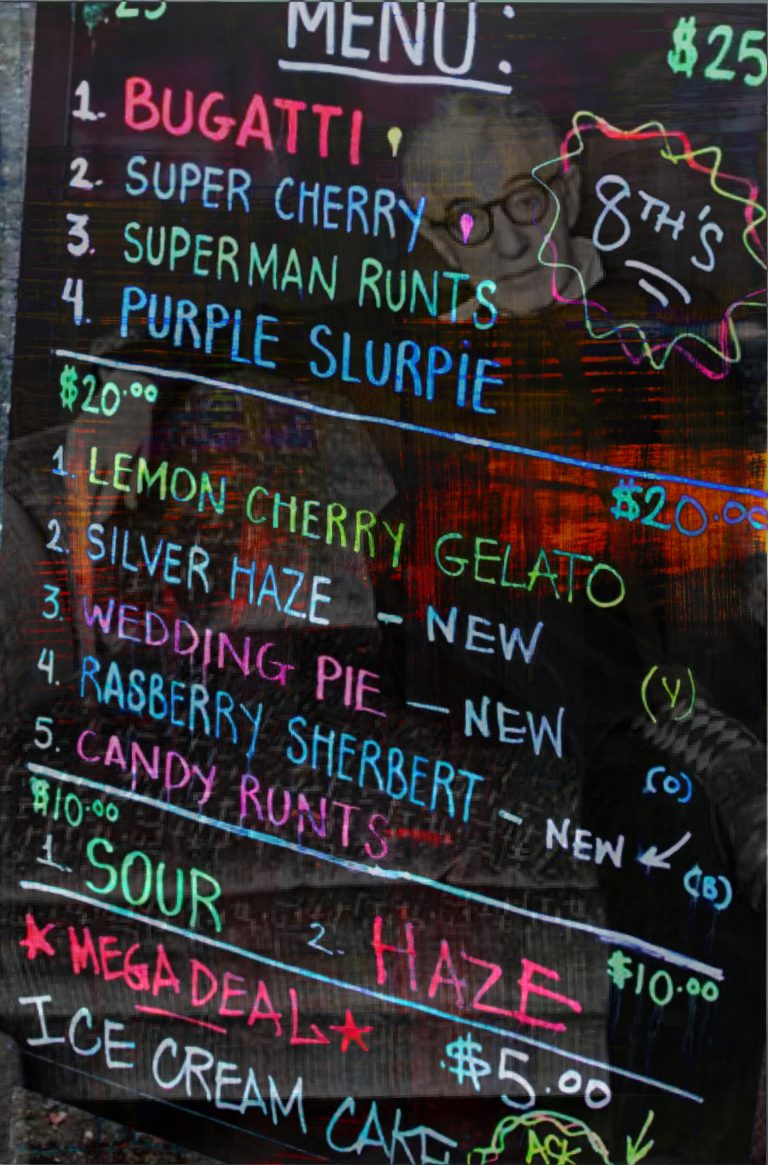 25
MENU:
$25
1. BUGATTI
8TH'S
2. SUPER CHERRY
3. SUPERMAN RUNTS
4. PURPLE SLURPIE
$20.00
$20.00
1. LEMON CHERRY GELATO
2. SILVER HAZE - NEW
3. WEDDING PIE - NEW
(Y)
4. RASBERRY SHERBERT - NEW
(O)
5. CANDY RUNTS
(B)
$10.00
1. SOUR
2. HAZE
$10.00
MEGA DEAL
$5.00
ICE CREAM CAKE
ASK